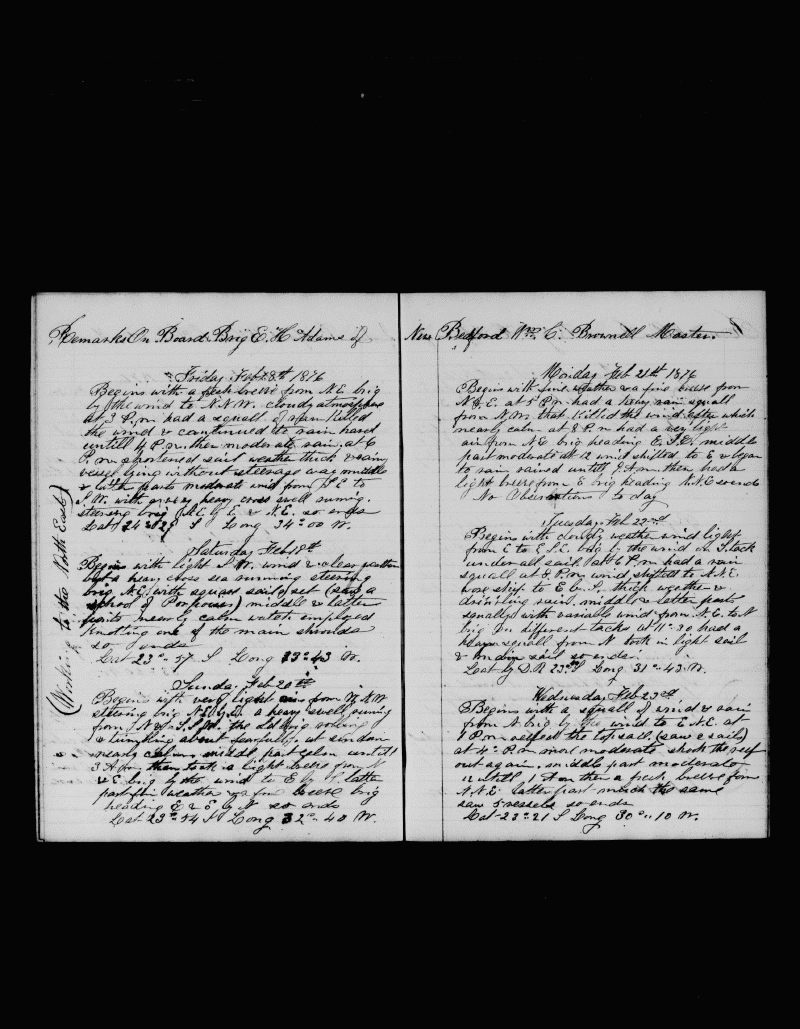 Remarks On Board Brig E. H. Adams of
Friday Feb 18th 1876
Begins with a fresh breeze from N.E. brig
by the wind to N.N.W. cloudy atmosphere
at 3 P.m had a squall of rain killed
the wind & continued to rain hard
untill 4 P.m then moderate rain, at 6
P.m shortened sail weather thick & rainy
vessel lying without steerage way middle
& latter parts moderate wind from S.E to
S.W. with heavy cross swell runing.
steering brig N.E. by E. & N.E. so ends
Lat 24 " 29 S Long 34° 00 W.
Saturday Feb 19th
Begins with light S.W. wind & clear weather
but a heavy cross sea running steering
brig N.E. with square sail set (saw a
school of Porpoises) middle & latter
parts nearly calm watch employed
Knotting one of the main shrouds
so ends
Lat 23° 57 S Long 33° 43 W.
Sunday Feb 20th
Begins with very light air from W.N.W
steering brig N.E. by E. a heavy swell runing
from N & S.S.W. the old brig rolling
& tumbling about fearfully, at sundown
nearly calm, middle part calm untill
3 A.m then took a light breeze from N
& E. brig by the wind to E by S. latter
part fine weather & a fine breeze brig
heading E & E by N so ends
Lat 23° 54 S Long 32° 40 W.
(Working to the North East)
New Bedford Wm C. Brownell Master.
Monday Feb 21st 1876
Begins with fine weather & a fine breeze from
N.E. at 5 P.m had a heavy rain squall
from N.W. that killed the wind after which
nearly calm at 8 P.m had a very light
air from N.E brig heading E.S.E. middle
part moderate at 12 wind shifted to E & began
to rain rained untill 9 A.m. then had a
light breeze from E brig heading N.N.E so ends
No Observation to Day
Tuesday Feb 22nd
Begins with cloudy weather wind light
from E to E.S.E. brig by the wind on S. tack
under all sail at 6 P.m had a rain
squall at 8 P.m wind shifted to N.N.E.
wore ship to E by S. thick weather &
drizzling rain. middle & latter part
squally with variable wind from N.E. to N
brig on different tacks at 11"30 had a
heavy squall from N took in light sail
& main sail so ends
Lat by D.R 23° S Long 31° 43 W.
Wednesday Feb 23rd
Begins with a squall of wind & rain
from N brig by the wind to E.N.E. at
1 P.m reefed the topsail (saw a sail)
at 4 P.m more moderate shook the reef
out again. middle part moderate
untill 1 A.m then a fresh breeze from
N.N.E. latter part much the same
saw 5 vessels so ends
Lat 23° 21 S Long 30° 10 W.